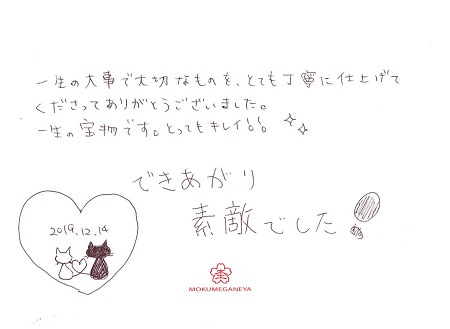 一生の大事で大切なものを、とても丁寧に仕上げて
くださってありがとうございました。
一生の宝物です。とってもキレイ!!
できあがり
素敵でした!
2019.12.14
MOKUMEGANEYA